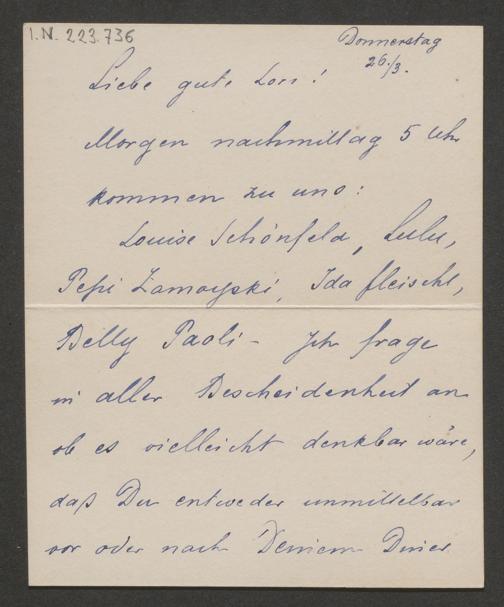 I.N. 223.736
Donnerstag
26./3.
Liebe gute Lori!
Morgen nachmittag 5 Uhr
kommen zu uns:
Louise Schönfeld, Lulu,
Pepi Zamoyski, Ida fleischl,
Betty Paoli - Ich frage
in aller Bescheidenheit an
ob es vielleicht denkbar wäre,
daß Du entweder unmittelbar
vor oder nach Deinem Diner